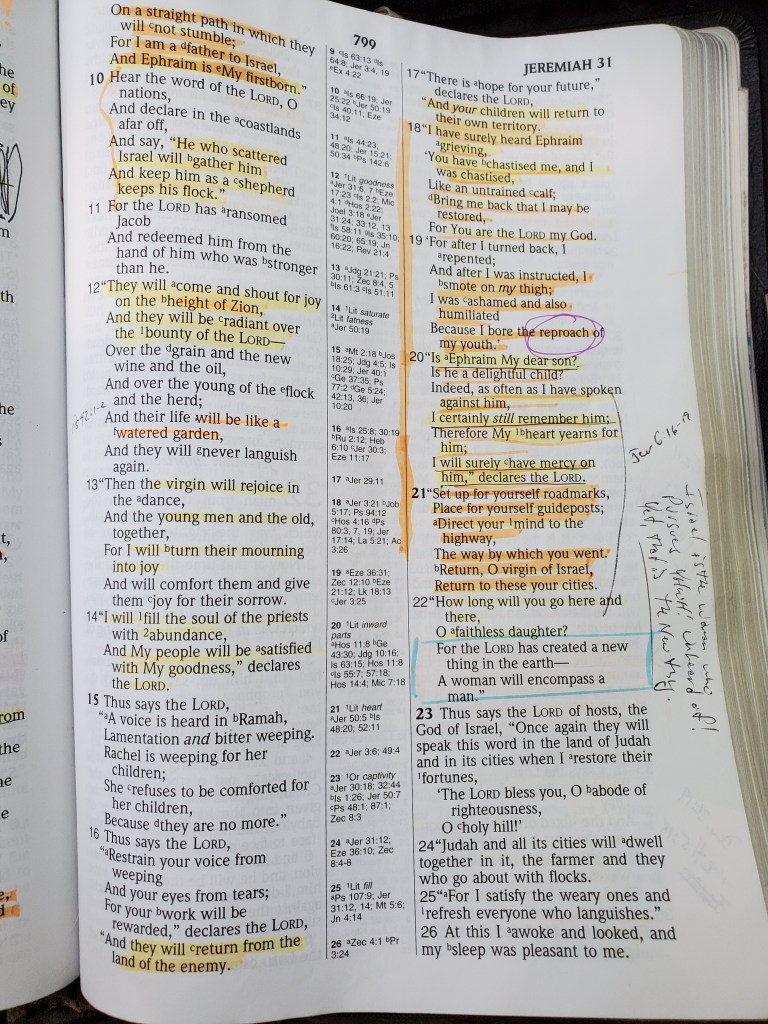 799
JEREMIAH 31
On a straight path in which they
will ᶜnot stumble;
For I am a ᵈfather to Israel,
And Ephraim is ᵉMy firstborn."
10 Hear the word of the LORD, O
nations,
And declare in the ᵃcoastlands
afar off,
And say, "He who scattered
Israel will ᵇgather him
And keep him as a ᶜshepherd
keeps his flock."
11 For the LORD has ᵃransomed
Jacob
And redeemed him from the
hand of him who was ᵇstronger
than he.
12"They will ᵃcome and shout for joy
on the ᵇheight of Zion,
And they will be ᶜradiant over
the ¹bounty of the LORD—
Over the ᵈgrain and the new
wine and the oil,
And over the young of the ᵉflock
and the herd;
And their life will be like a
ᶠwatered garden,
And they will ᵍnever languish
again.
13"Then the virgin will rejoice in
the ᵃdance,
And the young men and the old,
together,
For I will ᵇturn their mourning
into joy
And will comfort them and give
them ᶜjoy for their sorrow.
14"I will ¹fill the soul of the priests
with ²abundance,
And My people will be ᵃsatisfied
with My goodness," declares
the LORD.
15 Thus says the LORD,
"ᵃA voice is heard in ᵇRamah,
Lamentation and bitter weeping.
Rachel is weeping for her
children;
She ᶜrefuses to be comforted for
her children,
Because ᵈthey are no more."
16 Thus says the LORD,
"ᵃRestrain your voice from
weeping
And your eyes from tears;
For your ᵇwork will be
rewarded," declares the LORD,
"And they will ᶜreturn from the
land of the enemy.
9 ᶜIs 63:13 ᵈIs
64:8; Jer 3:4, 19
ᵉEx 4:22
10 ᵃIs 66:19; Jer
25:22 ᵇJer 50:19
ᶜIs 40:11; Eze
34:12
11 ᵃIs 44:23;
48:20; Jer 15:21;
50:34 ᵇPs 142:6
12 ¹Lit goodness
ᵃJer 31:6, 7 ᵇEze
17:23 ᶜIs 2:2; Mic
4:1 ᵈHos 2:22;
Joel 3:18 ᵉJer
31:24; 33:12, 13
ᶠIs 58:11 ᵍIs 35:10;
60:20; 65:19; Jn
16:22; Rev 21:4
13 ᵃJdg 21:21; Ps
30:11; Zec 8:4, 5
ᵇIs 61:3 ᶜIs 51:11
14 ¹Lit saturate
²Lit fatness
ᵃJer 50:19
15 ᵃMt 2:18 ᵇJos
18:25; Jdg 4:5; Is
10:29; Jer 40:1
ᶜGe 37:35; Ps
77:2 ᵈGe 5:24;
42:13, 36; Jer
10:20
16 ᵃIs 25:8; 30:19
ᵇRu 2:12; Heb
6:10 ᶜJer 30:3;
Eze 11:17
17 ᵃJer 29:11
18 ᵃJer 3:21 ᵇJob
5:17; Ps 94:12
ᶜHos 4:16 ᵈPs
80:3, 7, 19; Jer
17:14; La 5:21; Ac
3:26
19 ᵃEze 36:31;
Zec 12:10 ᵇEze
21:12; Lk 18:13
ᶜJer 3:25
20 ¹Lit inward
parts
ᵃHos 11:8 ᵇGe
43:30; Jdg 10:16;
Is 63:15; Hos 11:8
ᶜIs 55:7; 57:18;
Hos 14:4; Mic 7:18
21 ¹Lit heart
ᵃJer 50:5 ᵇIs
48:20; 52:11
22 ᵃJer 3:6; 49:4
23 ¹Or captivity
ᵃJer 30:18; 32:44
ᵇIs 1:26; Jer 50:7
ᶜPs 48:1; 87:1;
Zec 8:3
24 ᵃJer 31:12;
Eze 36:10; Zec
8:4-8
25 ¹Lit fill
ᵃPs 107:9; Jer
31:12, 14; Mt 5:6;
Jn 4:14
26 ᵃZec 4:1 ᵇPr
3:24
17"There is ᵃhope for your future,"
declares the LORD,
"And your children will return to
their own territory.
18"I have surely heard Ephraim
ᵃgrieving,
'You have ᵇchastised me, and I
was chastised,
Like an untrained ᶜcalf;
ᵈBring me back that I may be
restored,
For You are the LORD my God.
19 'For after I turned back, I
ᵃrepented;
And after I was instructed, I
ᵇsmote on my thigh;
I was ᶜashamed and also
humiliated
Because I bore the reproach of
my youth.'
20"Is ᵃEphraim My dear son?
Is he a delightful child?
Indeed, as often as I have spoken
against him,
I certainly still remember him;
Therefore My ¹ᵇheart yearns for
him;
I will surely ᶜhave mercy on
him," declares the LORD.
21"Set up for yourself roadmarks,
Place for yourself guideposts;
ᵃDirect your ¹mind to the
highway,
The way by which you went.
ᵇReturn, O virgin of Israel,
Return to these your cities.
22"How long will you go here and
there,
O ᵃfaithless daughter?
For the LORD has created a new
thing in the earth—
A woman will encompass a
man."
23 Thus says the LORD of hosts, the
God of Israel, "Once again they will
speak this word in the land of Judah
and in its cities when I ᵃrestore their
¹fortunes,
'The LORD bless you, O ᵇabode of
righteousness,
O ᶜholy hill!'
24"Judah and all its cities will ᵃdwell
together in it, the farmer and they
who go about with flocks.
25"ᵃFor I satisfy the weary ones and
¹refresh everyone who languishes."
26 At this I ᵃawoke and looked, and
my ᵇsleep was pleasant to me.
Jer 6:16
Israel is the woman who
pursues Yahweh! Unheard of!
Yet, that is the New thing.